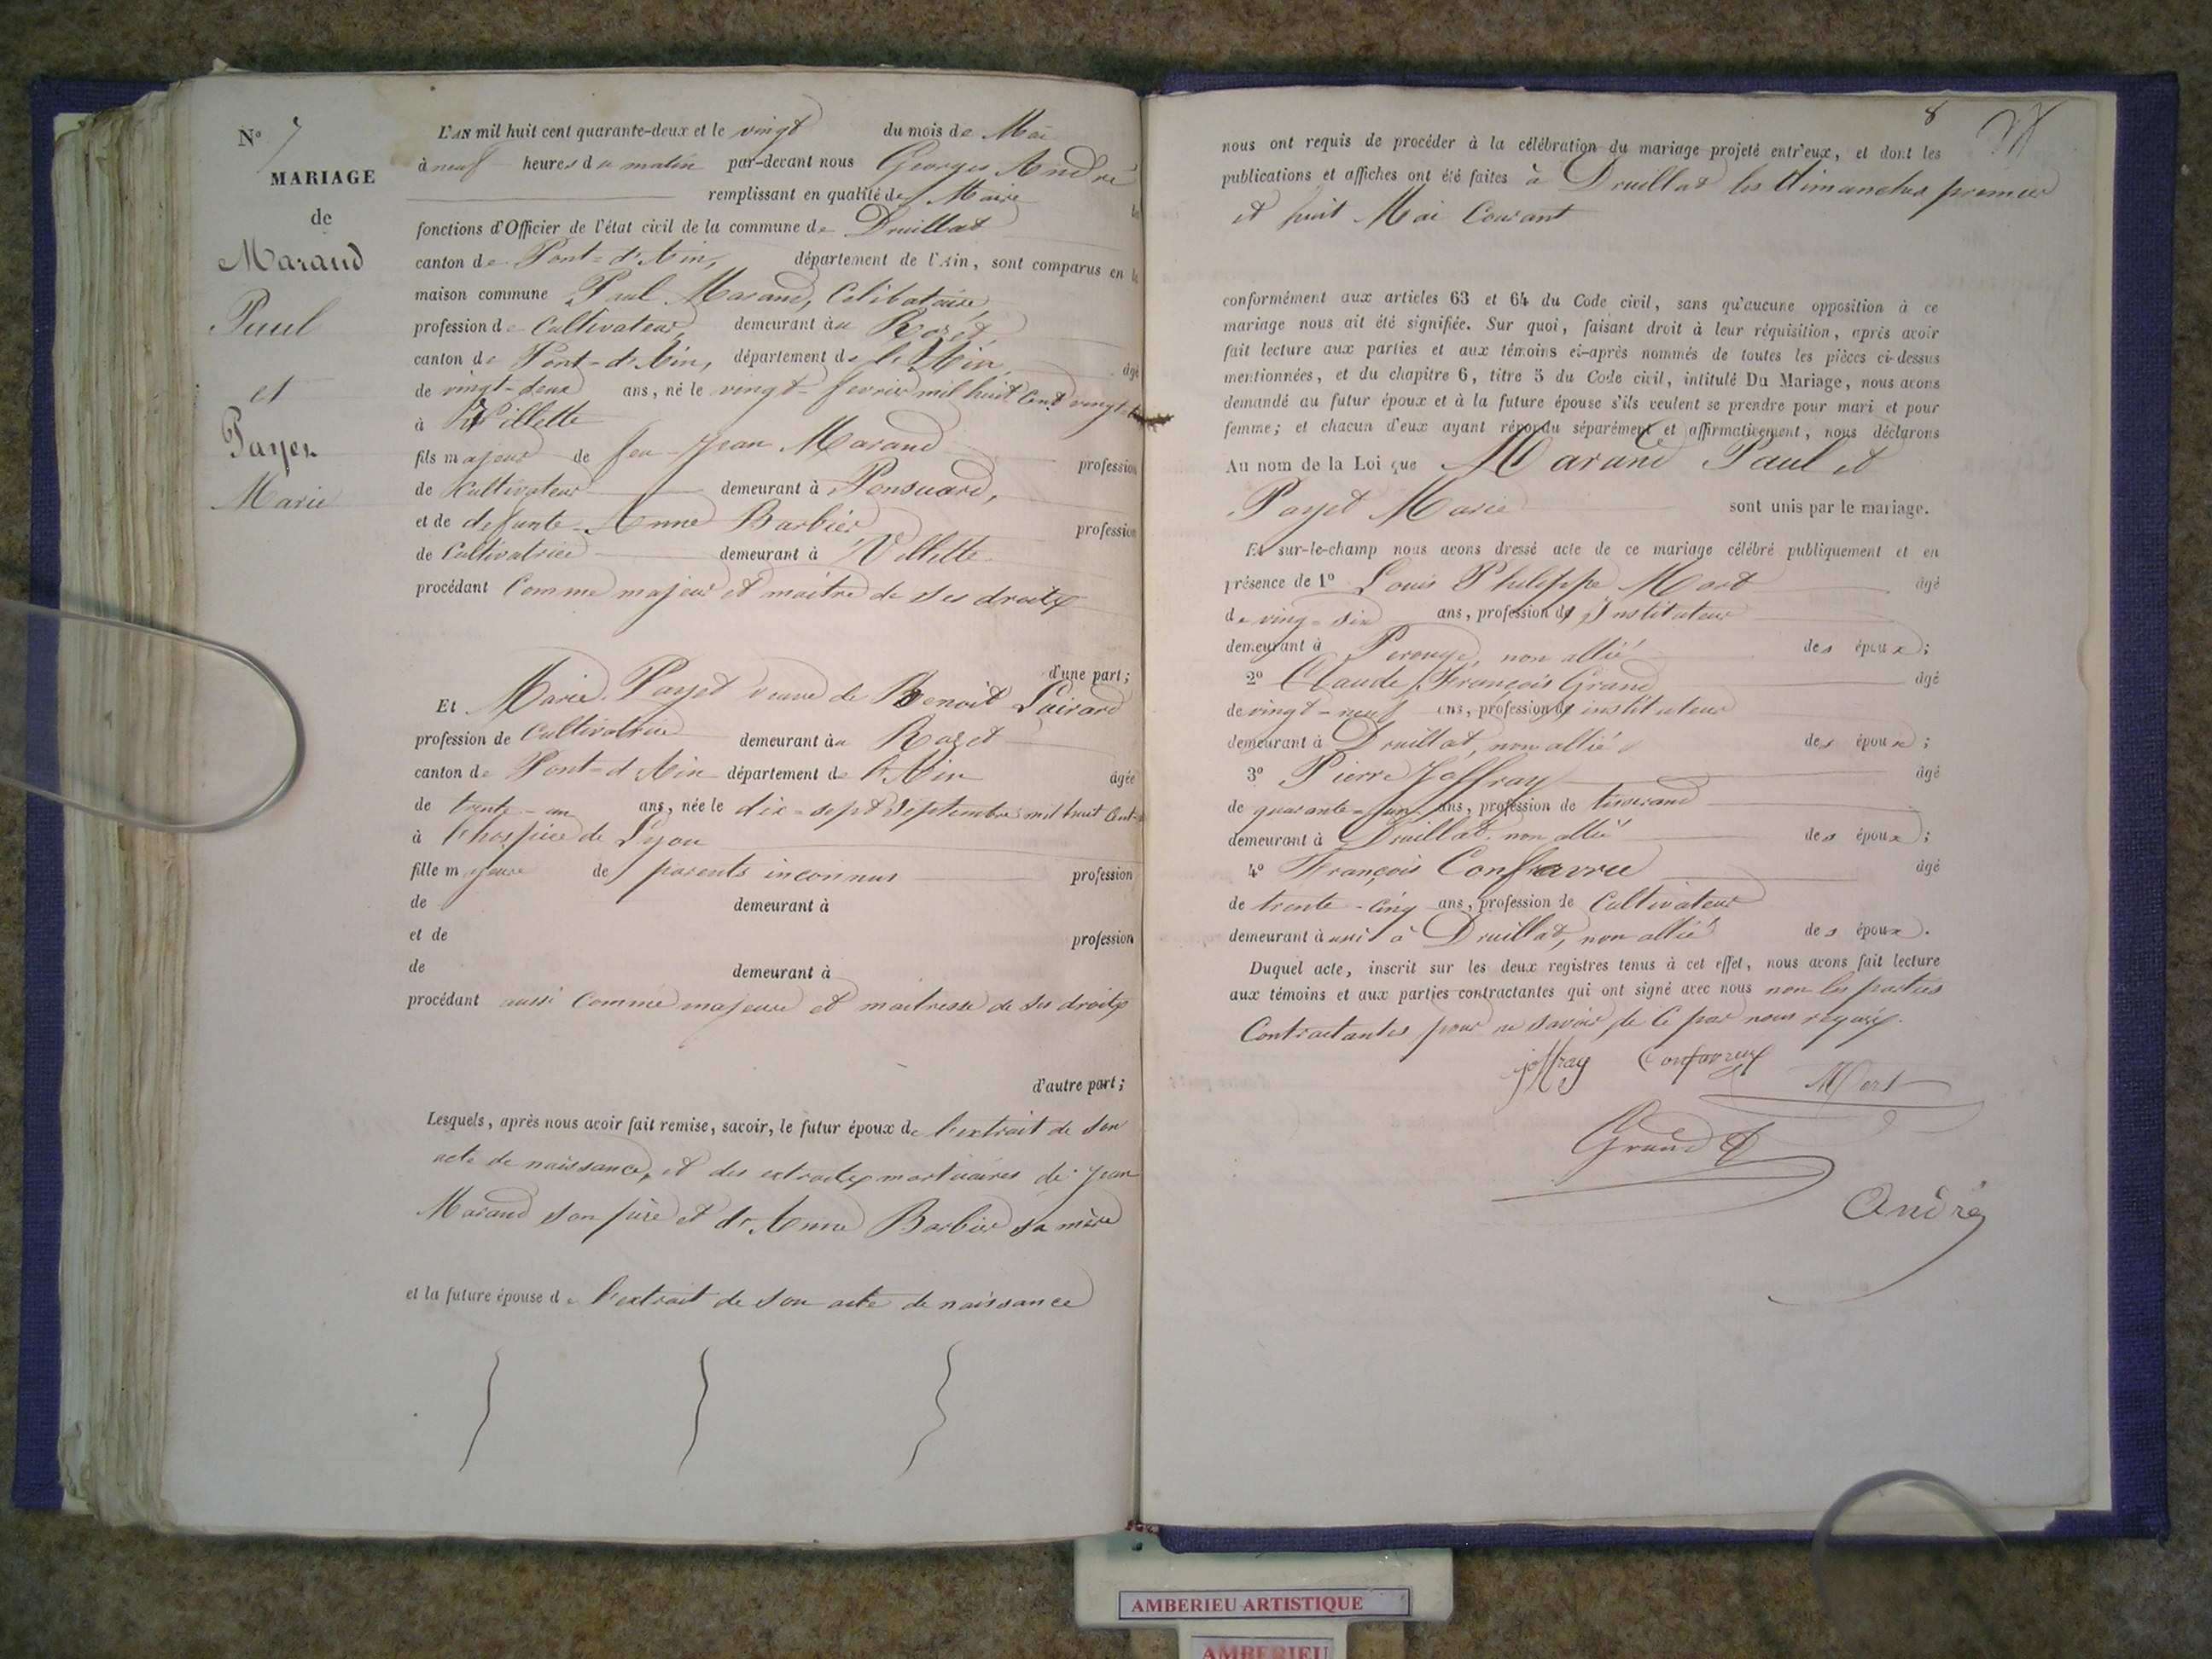 N° 7
MARIAGE
de
Marand
Paul
et
Payet
Marie
L'AN mil huit cent quarante-deux et le vingt du mois de Mai
à neuf heures du matin par-devant nous Georges André
remplissant en qualité de Maire
fonctions d'Officier de l'état civil de la commune de Druillat
canton de Pont-d'Ain, département de l'Ain, sont comparus en la
maison commune Paul Marand, Célibataire,
profession de Cultivateur, demeurant au Rozet,
canton de Pont-d'Ain, département de l'Ain, âgé
de vingt-deux ans, né le vingt février mil huit cent vingt
à Villette
fils majeur de feu Jean Marand profession
de Cultivateur demeurant à Ponsuard,
et de defunte Anne Barbier profession
de Cultivatrice demeurant à Villette
procédant Comme majeur et maitre de ses droits
d'une part ;
Et Marie Payet veuve de Benoit Luirard
profession de Cultivatrice demeurant au Rozet
canton de Pont-d'Ain département de l'Ain âgée
de trente-un ans, née le dix-sept Septembre mil huit Cent
à l'hospice de Lyon
fille majeure de parents inconnus profession
de demeurant à
et de profession
de demeurant à
procédant aussi Comme majeure et maitresse de ses droits
d'autre part ;
Lesquels, après nous avoir fait remise, savoir, le futur époux de l'extrait de son
acte de naissance, et des extraits mortuaires de Jean
Marand son père et de Anne Barbier sa mère
et la future épouse de l'extrait de son acte de naissance
8
nous ont requis de procéder à la célébration du mariage projeté entr'eux, et dont les
publications et affiches ont été faites à Druillat les Dimanches premier
et huit Mai Courant
conformément aux articles 63 et 64 du Code civil, sans qu'aucune opposition à ce
mariage nous ait été signifiée. Sur quoi, faisant droit à leur réquisition, après avoir
fait lecture aux parties et aux témoins ci-après nommés de toutes les pièces ci-dessus
mentionnées, et du chapitre 6, titre 5 du Code civil, intitulé Du Mariage, nous avons
demandé au futur époux et à la future épouse s'ils veulent se prendre pour mari et pour
femme ; et chacun d'eux ayant répondu séparément et affirmativement, nous déclarons
Au nom de la Loi que Marand Paul et
Payet Marie sont unis par le mariage.
Et sur-le-champ nous avons dressé acte de ce mariage célébré publiquement et en
présence de 1° Louis Philippe Mort âgé
de ving-six ans, profession d' Instituteur
demeurant à Perouge, non allié des époux ;
2° Claude François Grand âgé
de vingt-neuf ans, profession d' instituteur
demeurant à Druillat, non allié des époux ;
3° Pierre Joffray âgé
de quarante-un ans, profession de tisserand
demeurant à Druillat, non allié des époux ;
4° François Confavreu âgé
de trente-cinq ans, profession de Cultivateur
demeurant aussi à Druillat, non allié des époux.
Duquel acte, inscrit sur les deux registres tenus à cet effet, nous avons fait lecture
aux témoins et aux parties contractantes qui ont signé avec nous non les parties
Contractantes pour ne savoir de Ce par nous requis.
joffray Confavreux
Mort
Grand
André
AMBERIEU ARTISTIQUE
AMBERIEU